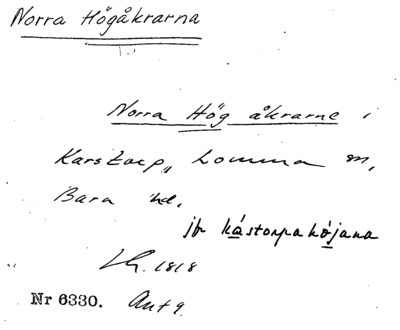 Norra Högåkrarna
Norra Hög åkrarne i
Karstorp, Lomma sn,
Bara hd.
jfr kástorpahöjana
Lh. 1818
Nr 6330. Ant 9.